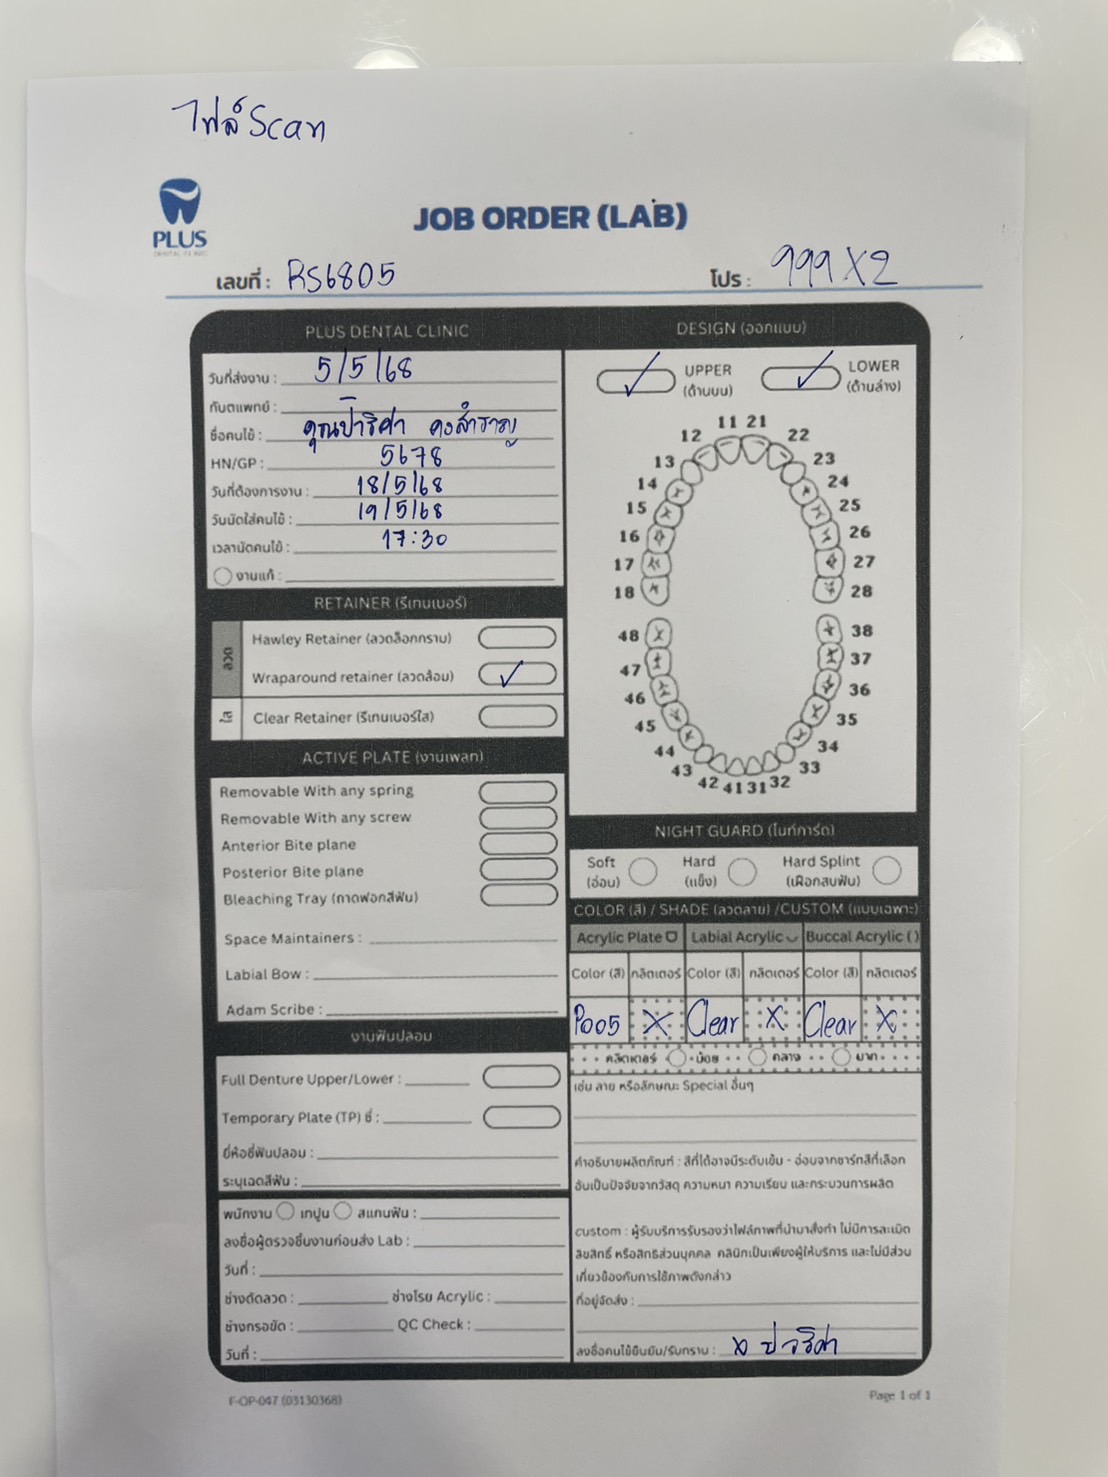 ไฟล์ Scan
PLUS
DENTAL CLINIC
JOB ORDER (LAB)
เลขที่ : RS6805
โปร : 999 X2
PLUS DENTAL CLINIC
วันที่ส่งงาน : 5/5/68
ทันตแพทย์ :
ชื่อคนไข้ : คุณปาริศา คงสำราญ
HN/GP : 5678
วันที่ต้องการงาน : 18/5/68
วันนัดใส่คนไข้ : 19/5/68
เวลานัดคนไข้ : 17:30
งานแก้ :
RETAINER (รีเทนเนอร์)
ลวด
Hawley Retainer (ลวดล็อกกราม)
Wraparound retainer (ลวดล้อม)
ใส
Clear Retainer (รีเทนเนอร์ใส)
ACTIVE PLATE (งานเพลท)
Removable With any spring
Removable With any screw
Anterior Bite plane
Posterior Bite plane
Bleaching Tray (ถาดฟอกสีฟัน)
Space Maintainers :
Labial Bow :
Adam Scribe :
งานฟันปลอม
Full Denture Upper/Lower :
Temporary Plate (TP) ซี่ :
ยี่ห้อซี่ฟันปลอม :
ระบุเฉดสีฟัน :
พนักงาน เทปูน สแกนฟัน :
ลงชื่อผู้ตรวจชิ้นงานก่อนส่ง Lab :
วันที่ :
ช่างดัดลวด : ช่างโรย Acrylic :
ช่างกรอขัด : QC Check :
วันที่ :
DESIGN (ออกแบบ)
UPPER
(ด้านบน)
LOWER
(ด้านล่าง)
11 21
12 22
13 23
14 24
15 25
16 26
17 27
18 28
48 38
47 37
46 36
45 35
44 34
43 33
42 41 31 32
NIGHT GUARD (ไนท์การ์ด)
Soft Hard Hard Splint
(อ่อน) (แข็ง) (เฝือกสบฟัน)
COLOR (สี) / SHADE (ลวดลาย) /CUSTOM (แบบเฉพาะ)
Acrylic Plate Labial Acrylic Buccal Acrylic ( )
Color (สี) กลิตเตอร์ Color (สี) กลิตเตอร์ Color (สี) กลิตเตอร์
P005 X Clear X Clear X
กลิตเตอร์ น้อย กลาง มาก
เช่น ลาย หรือลักษณะ Special อื่นๆ
คำอธิบายผลิตภัณฑ์ : สีที่ได้อาจมีระดับเข้ม - อ่อนจากชาร์ทสีที่เลือก
อันเป็นปัจจัยจากวัสดุ ความหนา ความเรียบ และกระบวนการผลิต
custom : ผู้รับบริการรับรองว่าไฟล์ภาพที่นำมาสั่งทำ ไม่มีการละเมิด
ลิขสิทธิ์ หรือสิทธิส่วนบุคคล คลินิกเป็นเพียงผู้ให้บริการ และไม่มีส่วน
เกี่ยวข้องกับการใช้ภาพดังกล่าว
ที่อยู่จัดส่ง :
ลงชื่อคนไข้ยืนยัน/รับทราบ : x ปาริศา
F-OP-047 (03130368)
Page 1 of 1